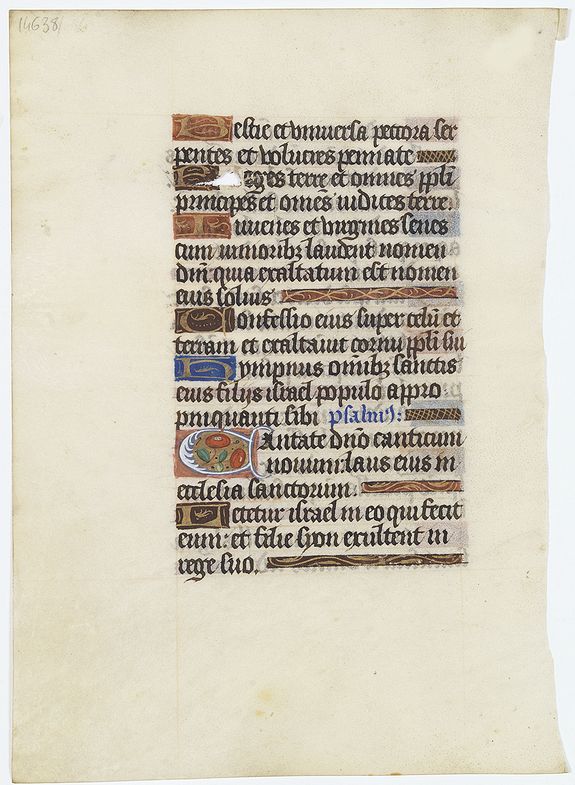 14638
Bestie et vniuersa pecora ser
pentes et volucres pennate
Reges terre et omnes ppli
principes et om̄es iudices terre.
Iuuenes et virgines senes
cum iunioribꝫ laudent nomen
dn̄i quia exaltatum est nomen
eius solius
Confessio eius super celū et
terram et exaltauit cornu ppli sui
Ympnus om̄ibꝫ sanctis
eius filijs israel populo appro
pinquanti sibi psalmꝰ:
Cantate dn̄o canticum
nouum: laus eius in
ecclesia sanctorum.
Letetur israel in eo qui fecit
eum: et filie syon exultent in
rege suo.